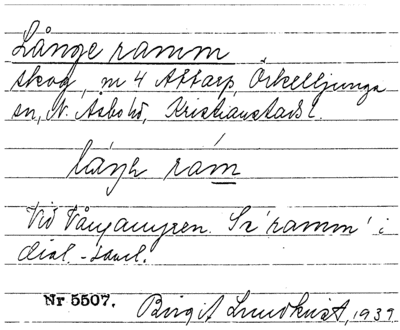 Långe ramm
skog, m 4 Attarp, Örkelljunga
sn, N. Åsbo hd, Kristianstads l.
la'ŋə ra'm
Vid Vångamyren. Se 'ramm' i
dial.-saml.
Nr 5507. Birgit Lundkvist, 1937